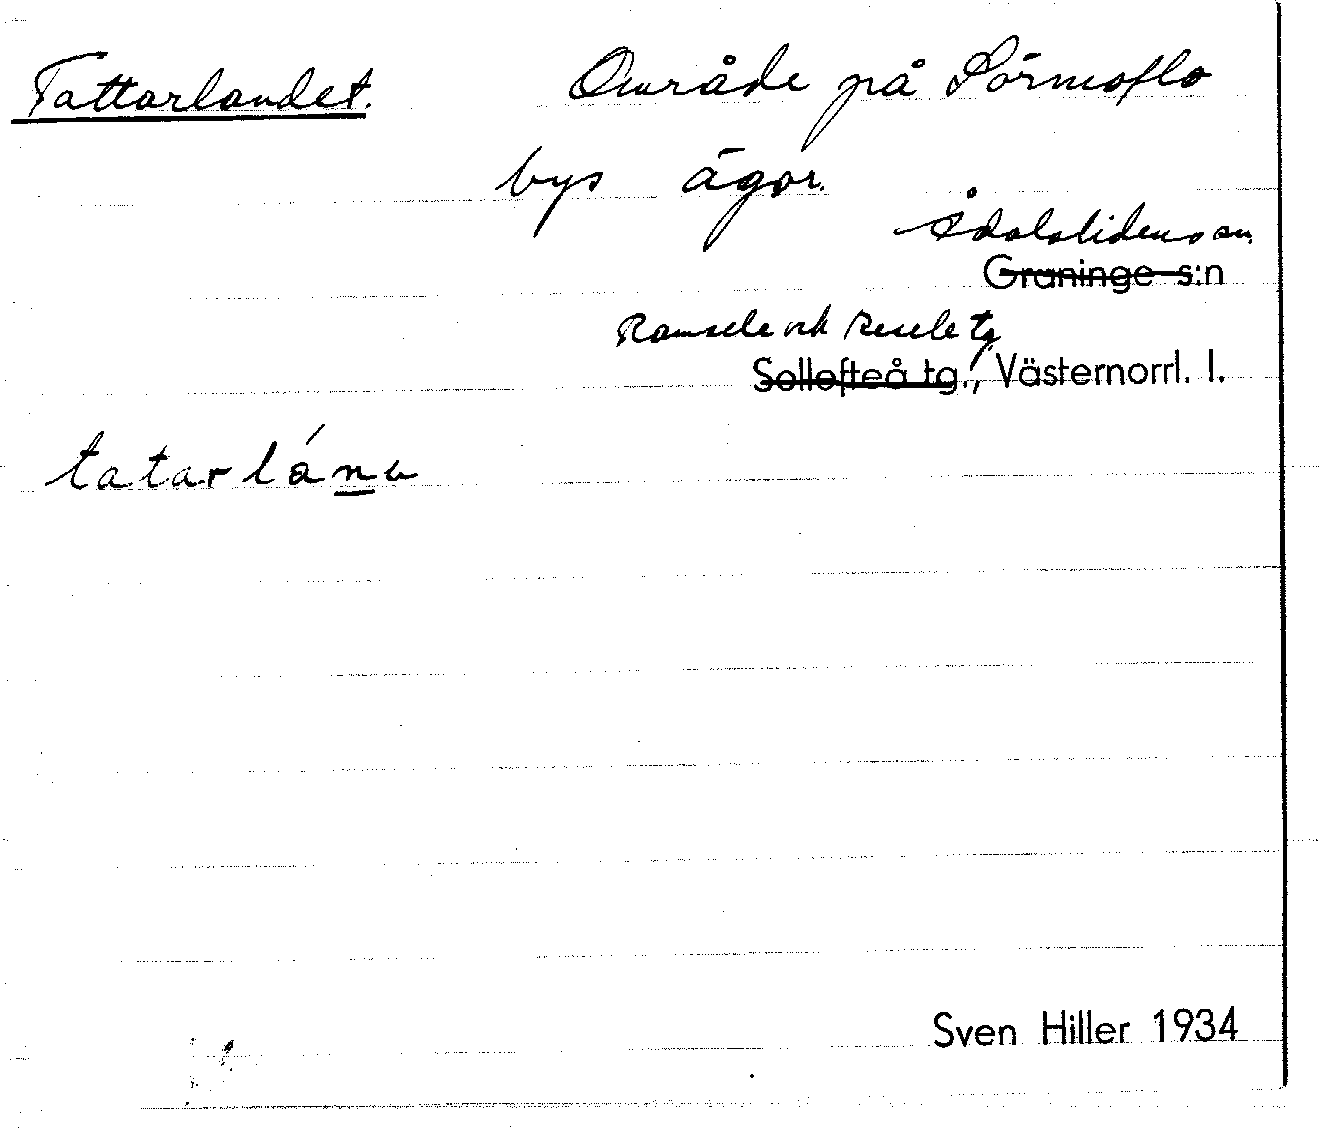 Tattarlandet. Område på Sörmoflo
bys ägor.
Ådalslidens sn.
Graninge s:n
Ramsele och Resele tg
Sollefteå tg., Västernorrl. l.
tatarlána
Sven Hiller 1934